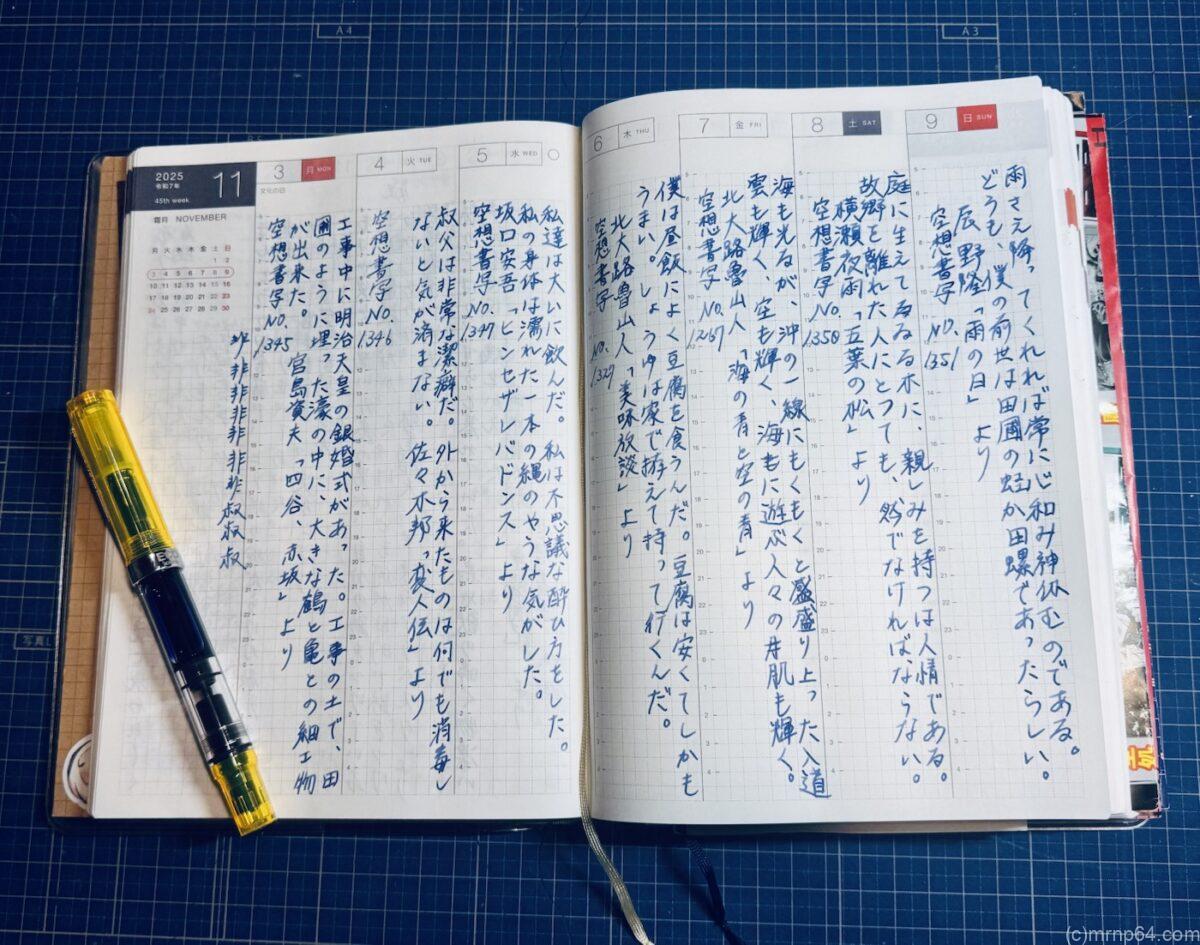 2025
令和7年
11
45th week
霜月 NOVEMBER
月 火 水 木 金 土 日
1 2
3 4 5 6 7 8 9
10 11 12 13 14 15 16
17 18 19 20 21 22 23
24 25 26 27 28 29 30
非非非非非非非叔叔叔
3 月 MON
文化の日
工事中に明治天皇の銀婚式があった。工事の土で、田
圃のように埋った濠の中に、大きな鶴と亀との細工物
が出来た。 宮島資夫「四谷、赤坂」より
空想書写 No.1345
4 火 TUE
叔父は非常な潔癖だ。外から来たものは何でも消毒し
ないと気が済まない。 佐々木邦「変人伝」より
空想書写 No.1346
5 水 WED
私達は大いに飲んだ。私は不思議な酔ひ方をした。
私の身体は濡れた一本の縄のやうな気がした。
坂口安吾「ピンセザレバドンス」より
空想書写 No.1347
6 木 THU
僕は昼飯によく豆腐を食うんだ。豆腐は安くてしかも
うまい。しょうゆは家で拵えて持って行くんだ。
北大路魯山人「美味放談」より
空想書写 No.1329
7 金 FRI
海も光るが、沖の一線にもくもくと盛り上った入道
雲も輝く、空も輝く、海もに遊ぶ人々の肌も輝く。
北大路魯山人「海の青と空の青」より
空想書写 No.1267
8 土 SAT
庭に生えてゐゐる木に、親しみを持つは人情である。
故郷を離れた人にとっても、然でなければならない。
横瀬夜雨「五葉の松」より
空想書写 No.1350
9 日 SUN
雨さえ降ってくれれば常に心和み神休むのである。
どうも、僕の前世は田圃の蛭か田螺であったらしい。
辰野隆「雨の日」より
空想書写 No.1351
A4
A3
(c)mrnp64.com